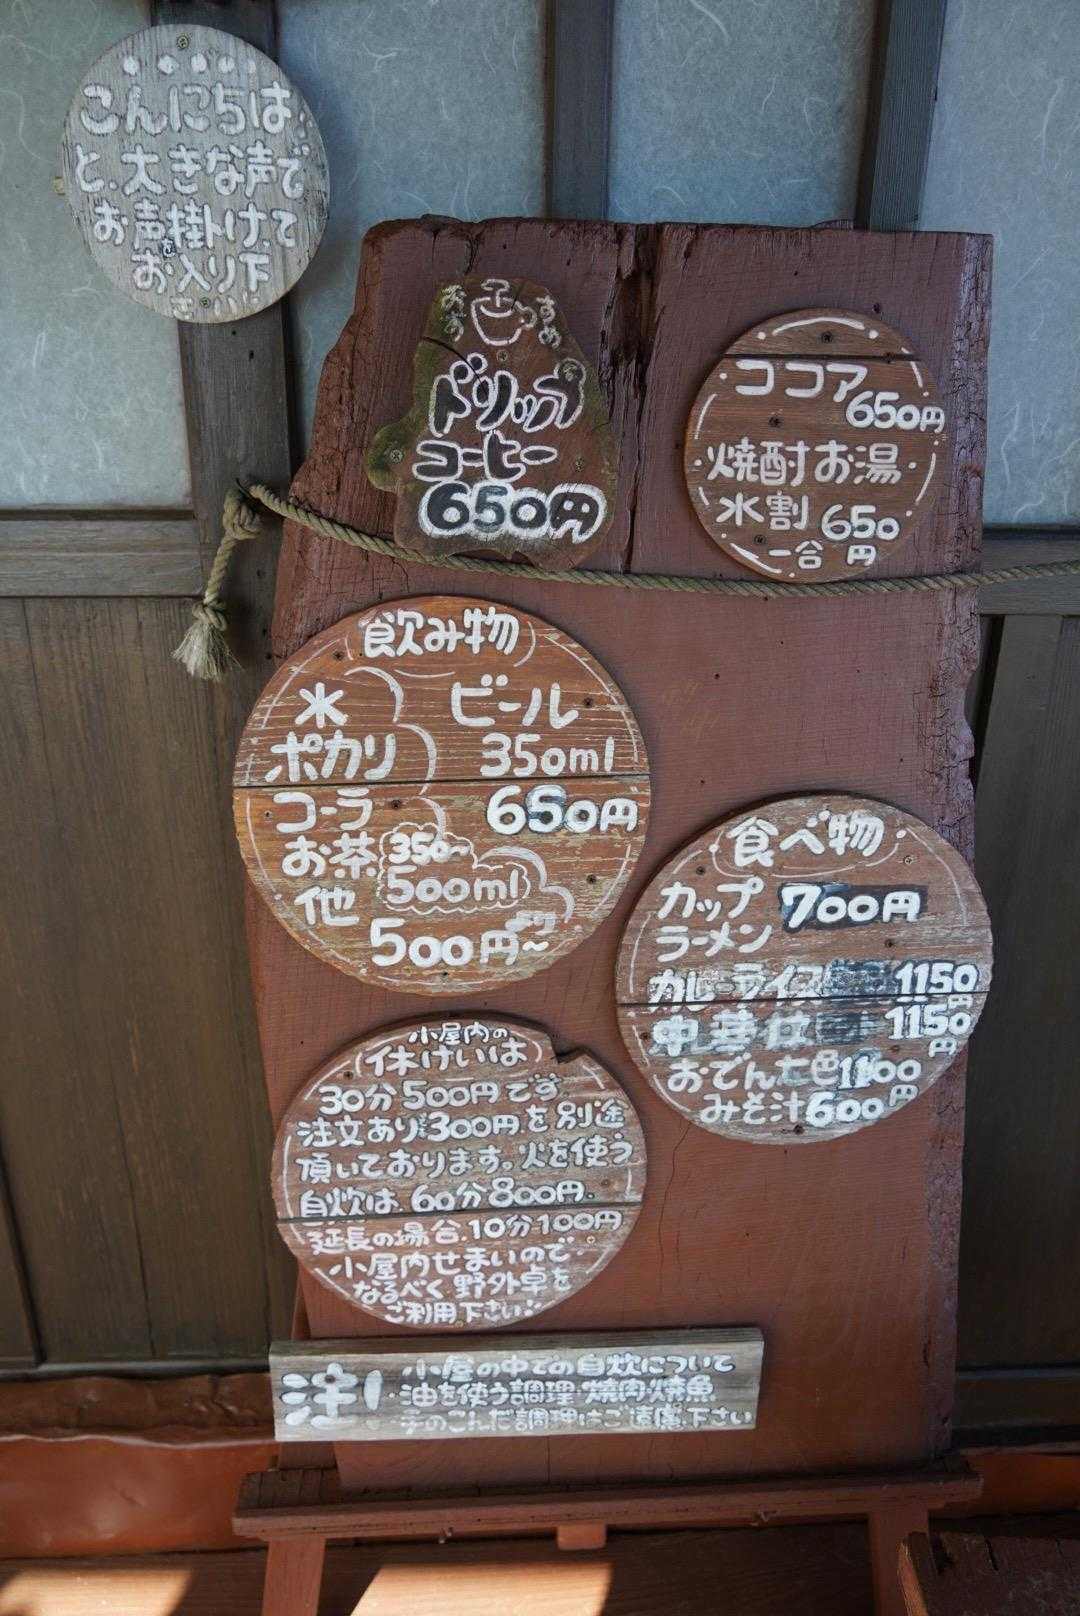 こんにちは
と、大きな声で
お声掛けて
お入り下
さい
おすすめ
ドリップ
コーヒー
650円
ココア
650円
焼酎お湯
水割 650
一合 円
飲み物
水
ポカリ
コーラ
お茶
他
350〜
500ml
500円〜
ビール
350ml
650円
食べ物
カップ 700円
ラーメン
カレーライス 1150
円
中華丼 1150
円
おでん七色 1100
円
みそ汁 600
小屋内の
休けいは
30分500円です。
注文あり300円を別途
頂いております。火を使う
自炊は、60分800円。
延長の場合、10分100円
小屋内せまいので
なるべく野外卓を
ご利用下さい
注!
小屋の中での自炊について
油を使う調理・焼肉・焼魚
手のこんだ調理はご遠慮下さい